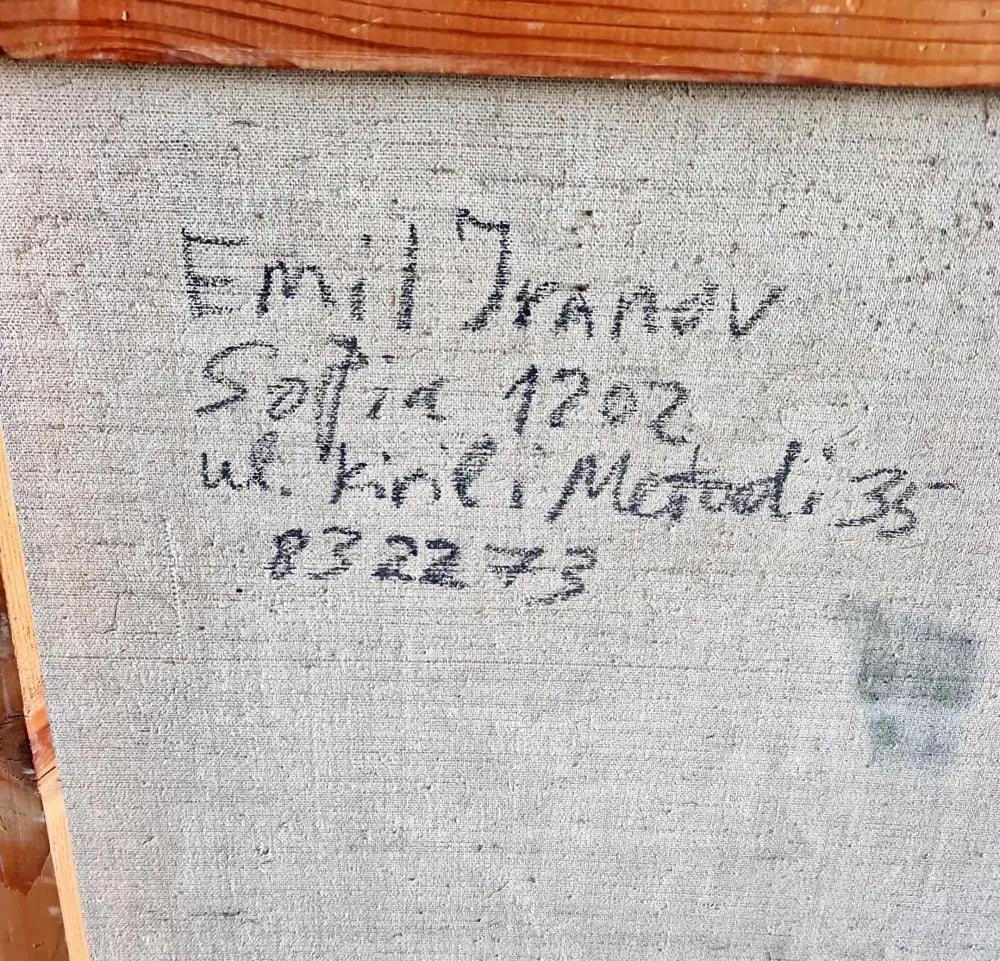 Emil Ivanov
Sofia 1202
ul. Kiril i Metodi 35
832273